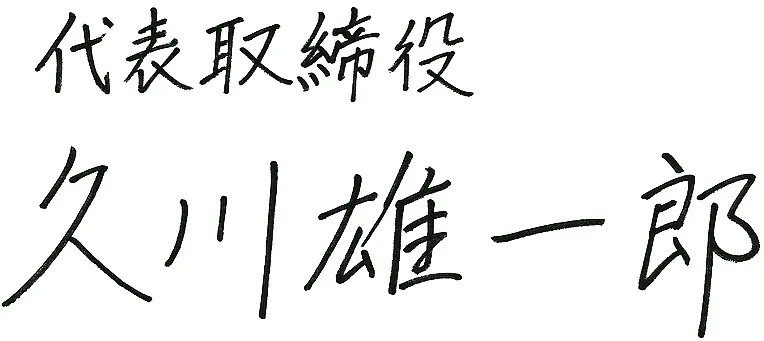 代表取締役
久川雄一郎